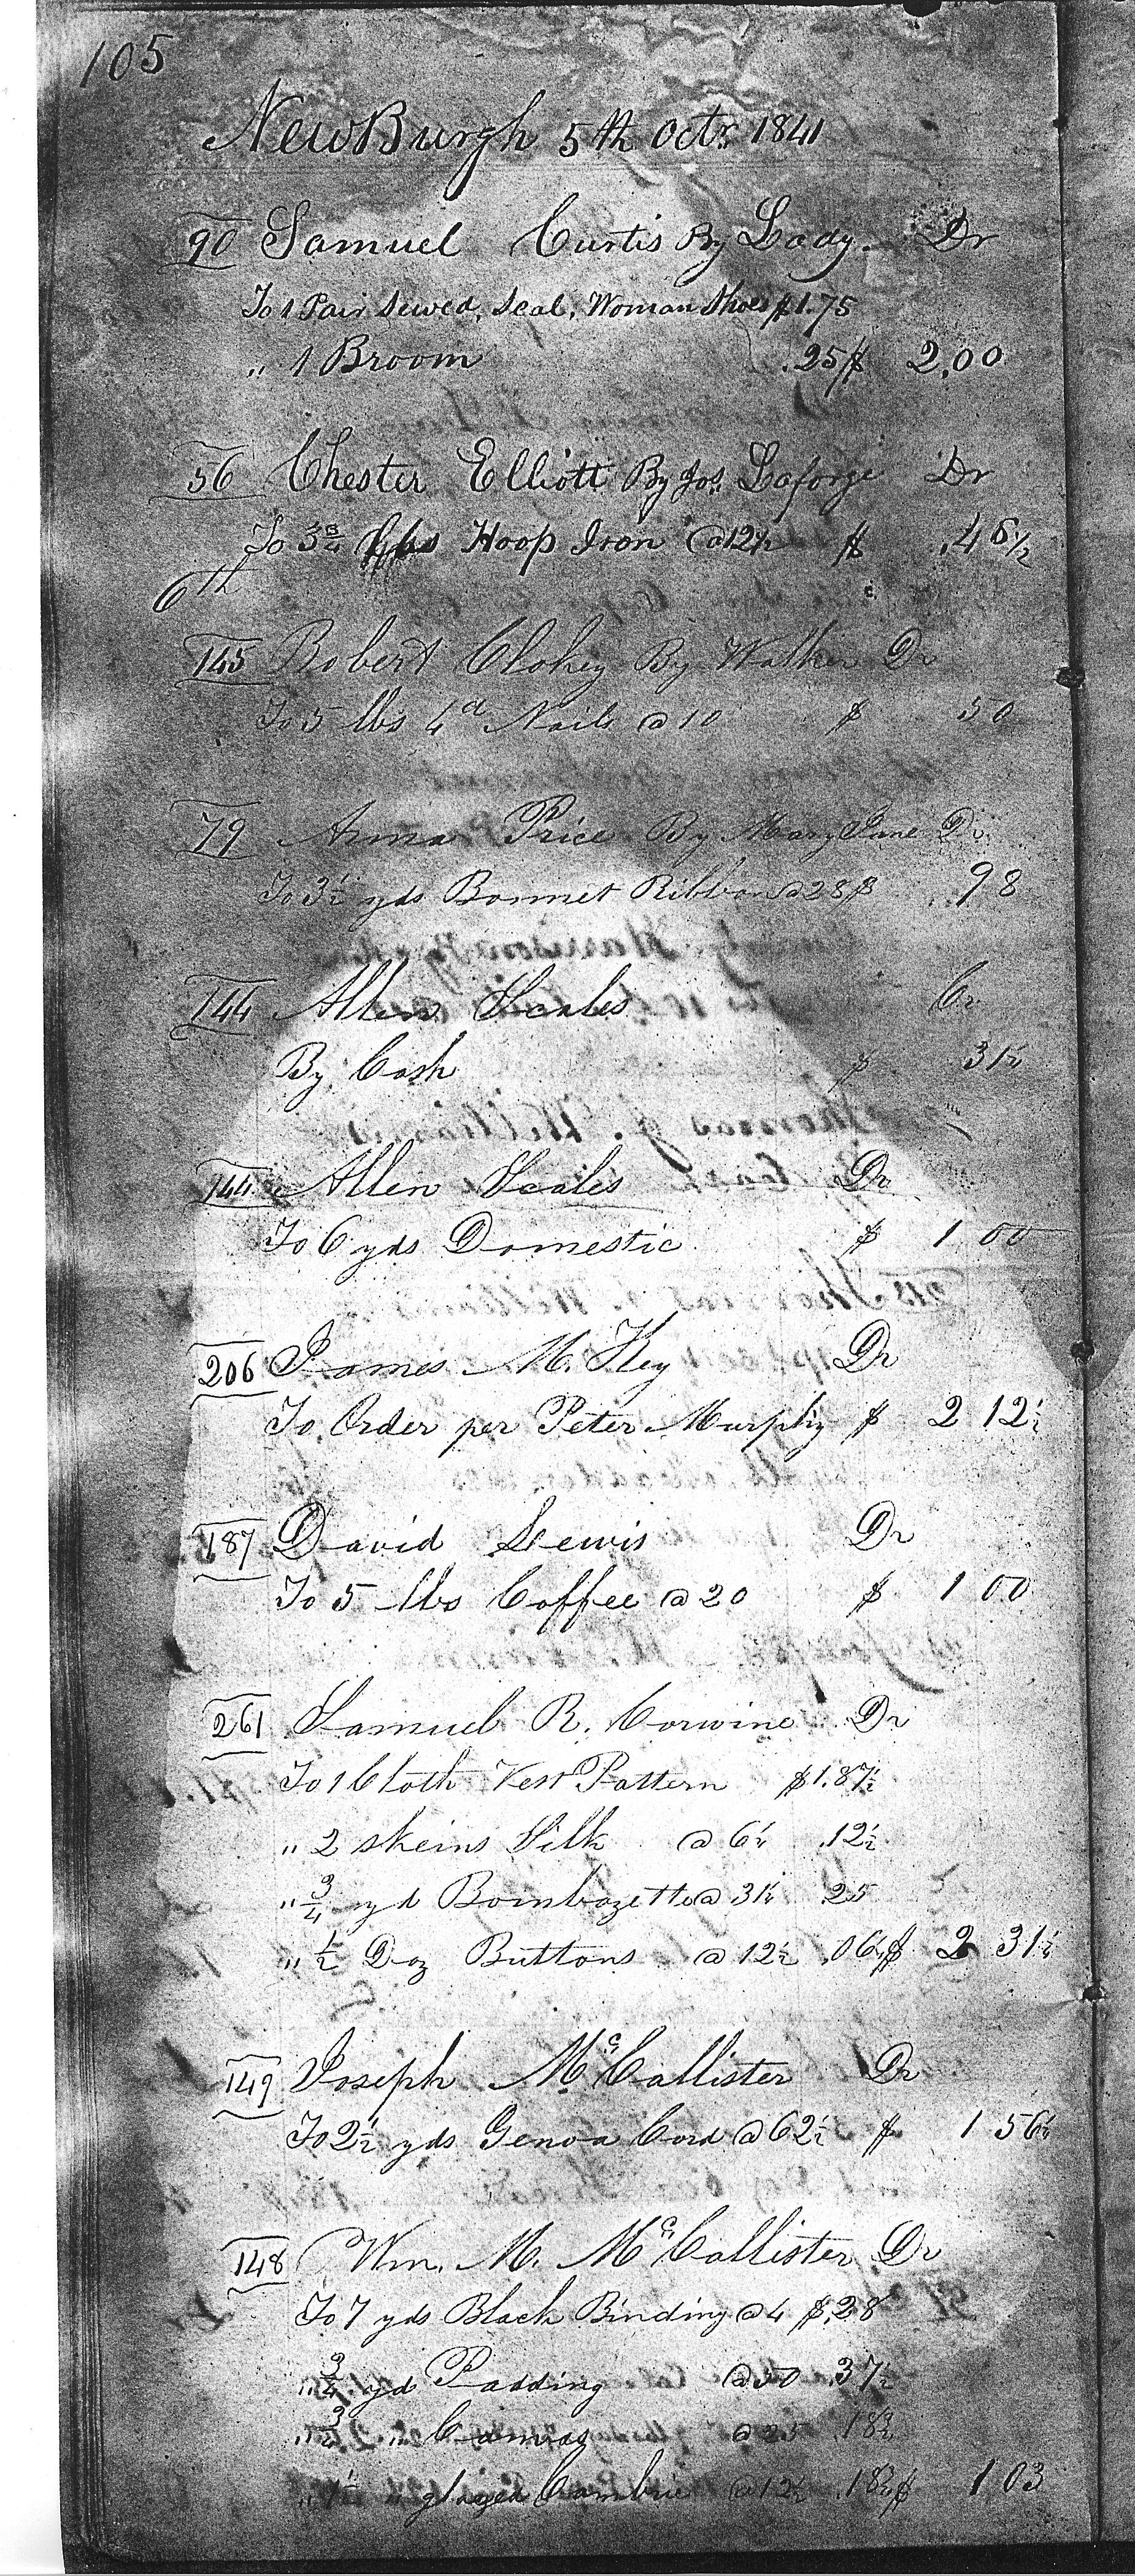 105
NewBurgh 5th Octr 1841
90 Samuel Curtis By Lady. Dr
To 1 Pair Sewed, Seal, Woman Shoes $1.75
„ 1 Broom .25 $ 2,00
56 Chester Elliott By Jos. Laforge Dr
To 3¾ lbs Hoop Iron @12½ $ .46½
6th
145 Robert Clokey By Walker Dr
To 5 lbs 4d Nails @ 10 $ 50
79 Anna Price By Mary Jane Dr
To 3½ yds Bonnet Ribbon @28 $ .98
144 Allen Scales Cr
By Cash $ 31¼
144 Allen Scales Dr
To 6 yds Domestic $ 1 00
206 James M. Key Dr
To Order per Peter Murphy $ 2 12½
187 David Lewis Dr
To 5 lbs Coffee @ 20 $ 1 00
261 Samuel R. Corwine Dr
To 1 Cloth Vest Pattern $1.87½
„ 2 skeins Silk @ 6¼ .12½
„ ¾ yd Bombazette @ 31¼ 25
„ ½ Doz Buttons @ 12½ .06¼ $ 2 31¼
149 Joseph McCallister Dr
To 2½ yds Genoa Cord @ 62½ $ 1 56¼
148 Wm. M. McCallister Dr
To 7 yds Black Binding @ 4 $.28
„ ¾ yd Padding @50 .37½
„ ¾ „ Canvas @25 .18¾
„ 1½ „ glazed Cambric @12½ .18¾ $ 1 03